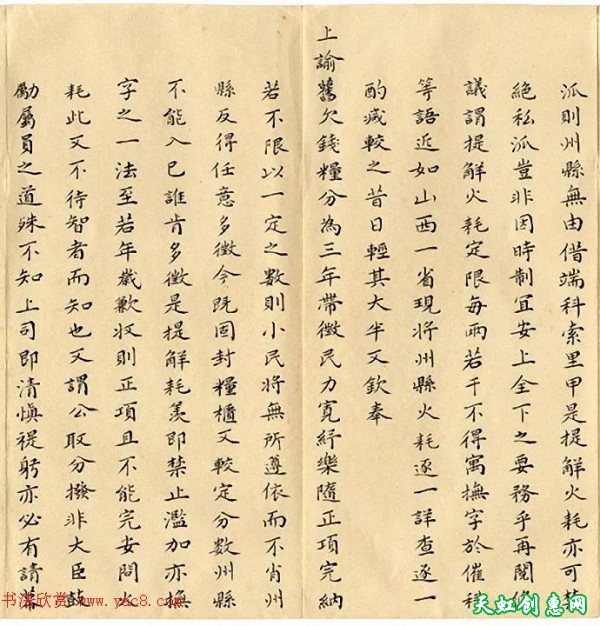 派則州縣無由借端科索里甲是提解火耗亦可禁
絕私派豈非因時制宜安上全下之要務乎再閱條
議謂提解火耗定限每兩若干不得寓撫字於催科
等語近如山西一省現將州縣火耗逐一詳查逐一
酌減較之昔日輕其大半又欽奉
上諭舊欠錢糧分為三年帶徵民力寬紓樂隨正項完納
若不限以一定之數則小民將無所遵依而不肖州
縣反得任意多徵今既固封糧櫃又較定分數州縣
不能入己誰肯多徵是提解耗羨即禁止濫加亦撫
字之一法至若年歲歉收則正項且不能完安問火
耗此又不待智者而知也又謂公取分撥非大臣鼓
勵屬員之道殊不知上司即清慎禔躬亦必有請幕
书法欣赏 www.yac8.com
天虹创惠网